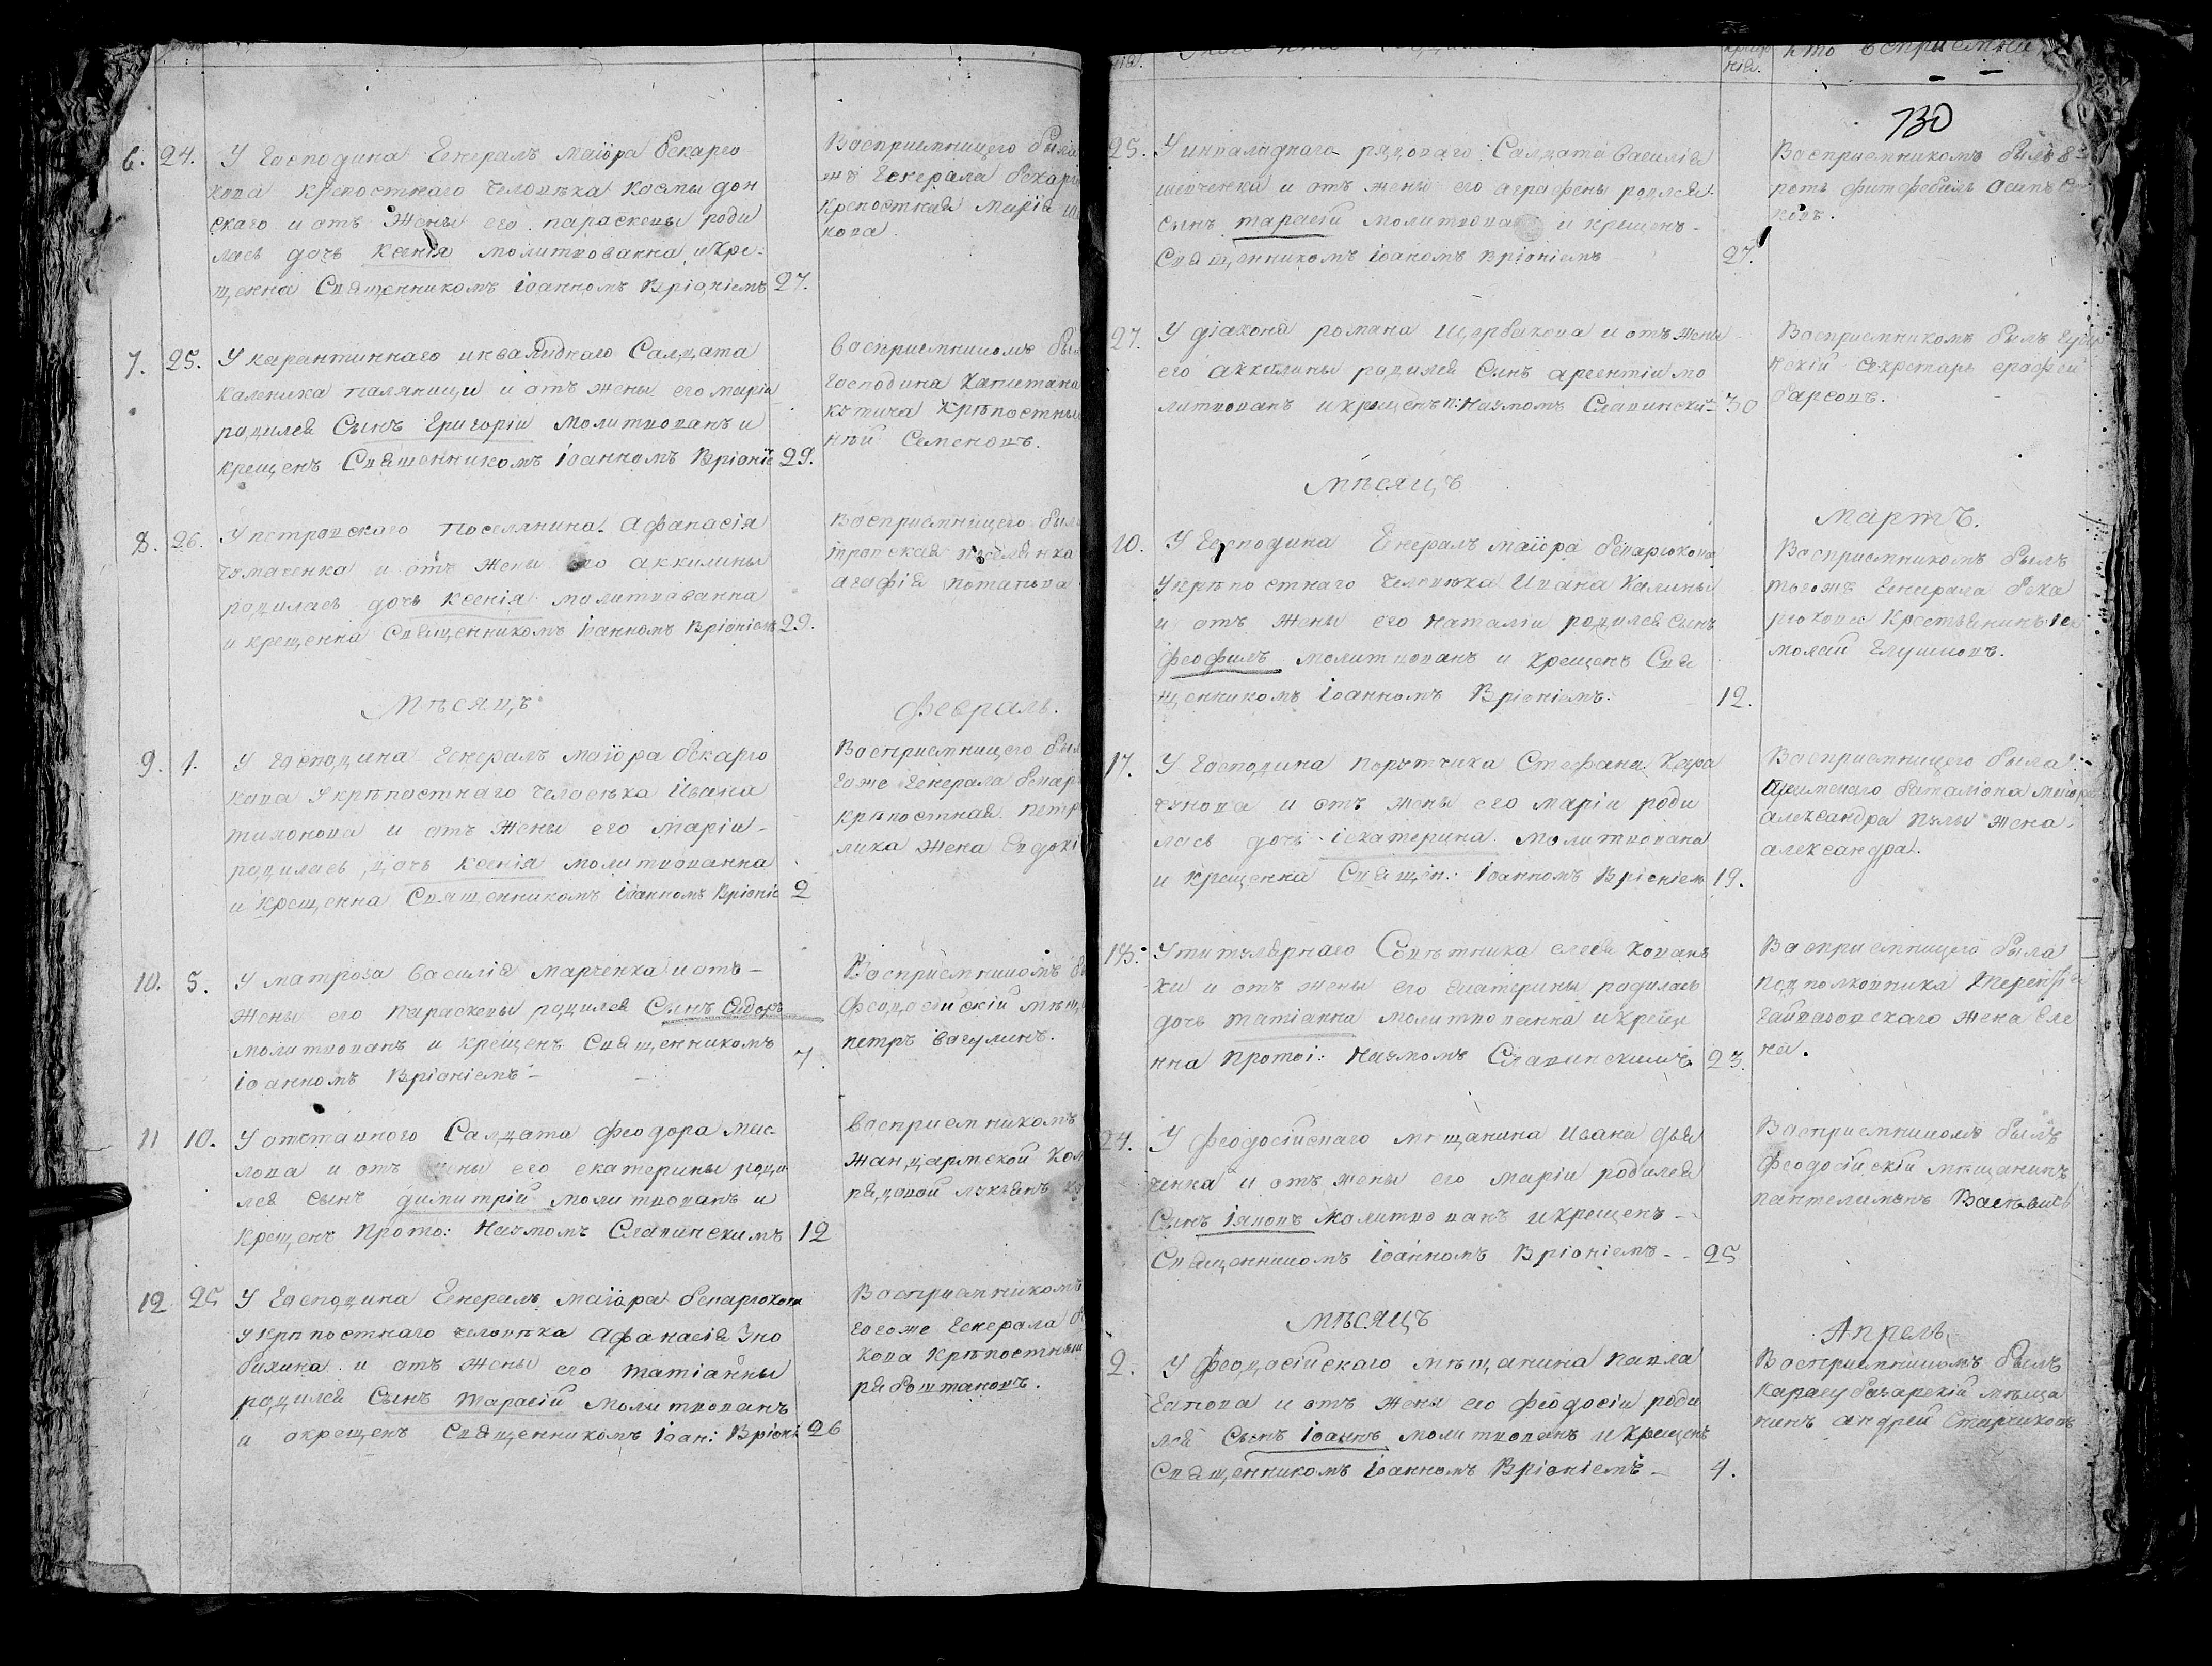 6. 24. У Господина Генералъ Маіора бекарю
кова крепостнаго человѣка космы дон
скаго и отъ жены его параскевы роди
лась дочь Ксенія молитвованна и кре:
щенна Священникомъ Іоанномъ Вріоніемъ 27.
Восприемницею была
Генерала бекарю
крепостная Марія
кова.
7. 25. У карантиннаго инвалиднаго Салдата
каленика паляници и отъ жены его маріи
родился Сынъ Григорій молитвованъ и
крещенъ Священникомъ Іоанномъ Вріоніе 29.
Восприемникомъ был
Господина Капитана
крѣпостны
ній Семеновъ.
8. 26. У петровскаго Поселянина Афанасія
чумаченка и отъ жены его аккилины
родилась дочь ксенія молитвованна
и крещенна Священникомъ Іоанномъ Вріоніемъ 29.
Восприемницею была
тровская поселянка
агафія потапова
Мѣсяцъ Февраль.
9. 1. У Господина Генералъ Маіора бекарю
кова У крѣпостнаго человѣка Ивана
тихонова и отъ жены его маріи
родилась дочь ксенія молитвованна
и крещенна Священникомъ Іоанномъ Вріоніе 2
Восприемницею был
гоже Генерала бекар
крѣпостная петр
лика жена Евдокі
10. 5. У матроза василія марченка и отъ –
жены его параскевы родился Сынъ Сидоръ
молитвованъ и крещенъ Священникомъ
Іоанномъ Вріоніемъ – 7.
Восприемникомъ бы
феодосійскій мѣщ
петръ вагулинъ.
11 10. У отставного Салдата феодора мас
лова и отъ жены его екатерины роди
лся сынъ димитрій молитвованъ и
крещенъ Прото: Наумомъ Славинскимъ 12
восприемникомъ
жандармской Ком
рядовой лукьянъ
12 25 У Господина Генералъ маіора бекарюкова
у крѣпостнаго человѣка Афанасія Зно
бихина и отъ жены его татіанны
родился Сынъ тарасій молитвованъ
и окрещенъ Священникомъ Іоан: Вріоні 26
Восприемникомъ
тогоже Генерала б
кова крѣпостный
ря боштановъ.
кто восприемни
130
25. У инвалиднаго рядоваго Салдата василія
шевченка и отъ жены его аграфены родлся
сынъ тарасій молитвова и крещенъ –
Священникомъ Іоаномъ Вріоніемъ 27.
Восприемникомъ былъ
ротъ фитфебель Осипъ
ковъ.
27. У діакона романа Щербакова и отъ жены
его аккилины родился Сынъ арсентіи мо
литвованъ и крещенъ п: Наумомъ Славински 30
Восприемникомъ былъ
нскій секретарь ерофей
барсовъ.
Мѣсяцъ Мартъ.
10. У Господина Генералъ маіора бекарюкова
У крѣпостнаго человѣка Ивана Калины
и отъ жены его наталіи родился сынъ
феофилъ молитвованъ и крещенъ Свя
щенникомъ Іоанномъ Вріоніемъ. 12.
Восприемникомъ былъ
тогоже Генерала бека
рюкова Крестьянинъ іер
молай Глушковъ.
17. У Господина порутчика Стефана Кара
чунова и отъ жены его маріи роди
лась дочь іекатерина молитвована
и крещенна Священ: Іоанномъ Вріоніем 19.
Восприемницею была
баталіона Маіора
александра жена
александра.
18. У титулярнаго Совѣтника елесея кован
ки и отъ жены его екатерины родилась
дочь татіанна молитвованна и креще
нна протоі: Наумомъ Славинскимъ 23.
Восприемницею была
подполковника
Гайвазовскаго жена Еле
на.
24. У феодосійскаго мѣщанина ивана дья
ченка и отъ жены его маріи родился
Сынъ Іяковъ молитвованъ и крещенъ –
Священникомъ Іоанномъ Вріоніемъ – 25
Восприемникомъ былъ
феодосійскій мѣщанинъ
пантелимонъ Васильевъ
мѣсяцъ Апрель
2. У феодосійскаго мѣщанина павла
Гапова и отъ жены его феодосіи роди
лся Сынъ Іоаннъ молитвованъ и крещенъ
Священникомъ Іоанномъ Вріоніемъ – 4.
Восприемникомъ былъ
карасубазарскій мѣща
нинъ андрей Старчиковъ